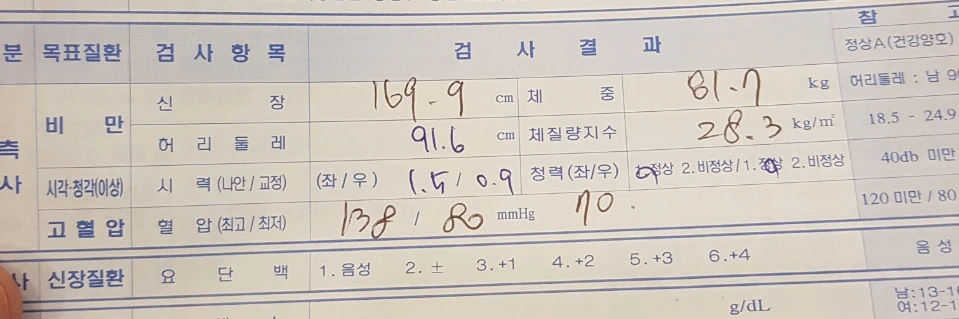 참 고
분 목표질환 검 사 항 목 검 사 결 과 정상A(건강양호)
비 만 신 장 169.9 cm 체 중 81.7 kg 허리둘레 : 남 90
측 허 리 둘 레 91.6 cm 체질량지수 28.3 kg/㎡ 18.5 - 24.9
사 시각·청각(이상) 시 력 (나안/교정) (좌/우) 1.5 / 0.9 청력(좌/우) 1.정상 2.비정상/1.정상 2.비정상 40db 미만
고 혈 압 혈 압(최고/최저) 138 / 80 mmHg 70. 120 미만 / 80
사 신장질환 요 단 백 1. 음성 2. ± 3. +1 4. +2 5. +3 6. +4 음 성
g/dL 남:13-16
여:12-1